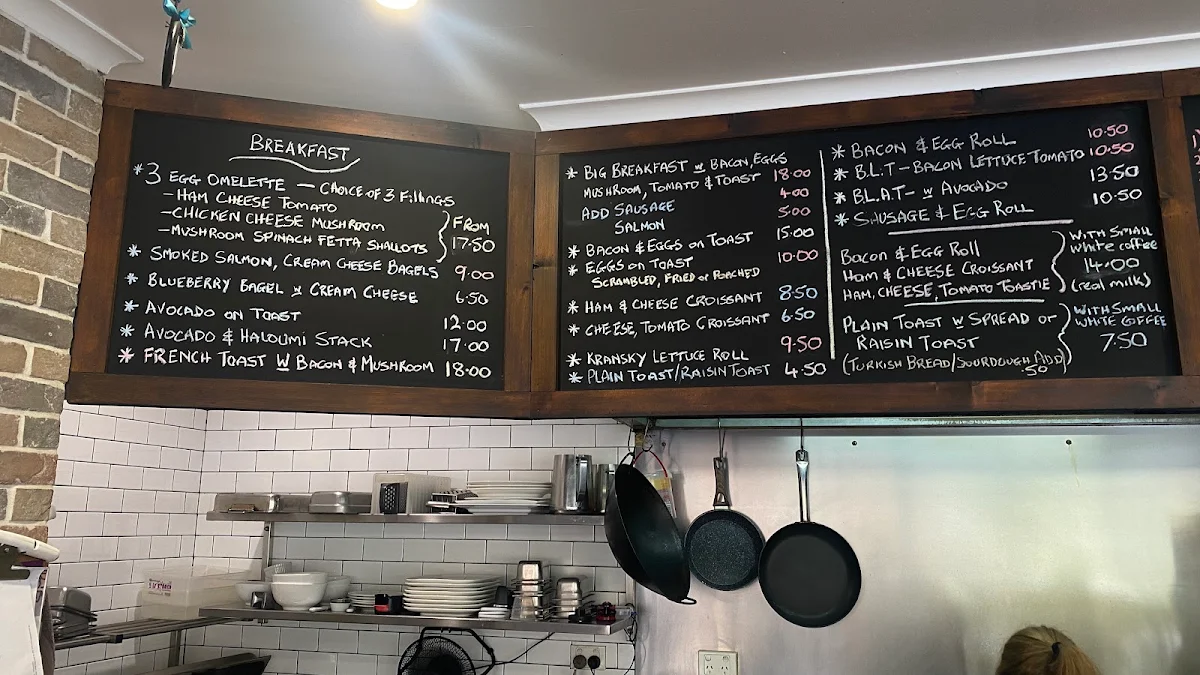 BREAKFAST
* 3 EGG OMELETTE — CHOICE OF 3 FILLINGS
- HAM CHEESE TOMATO
- CHICKEN CHEESE MUSHROOM
- MUSHROOM SPINACH FETTA SHALLOTS
FROM
17·50
* SMOKED SALMON, CREAM CHEESE BAGELS 9·00
* BLUEBERRY BAGEL W CREAM CHEESE 6·50
* AVOCADO ON TOAST 12·00
* AVOCADO & HALOUMI STACK 17·00
* FRENCH TOAST W BACON & MUSHROOM 18·00
* BIG BREAKFAST W BACON, EGGS
MUSHROOM, TOMATO & TOAST 18·00
ADD SAUSAGE 4·00
SALMON 5·00
* BACON & EGGS ON TOAST 15·00
* EGGS ON TOAST 10·00
SCRAMBLED, FRIED or POACHED
* HAM & CHEESE CROISSANT 8·50
* CHEESE, TOMATO CROISSANT 6·50
* KRANSKY LETTUCE ROLL 9·50
* PLAIN TOAST/RAISIN TOAST 4·50
* BACON & EGG ROLL 10·50
* B.L.T - BACON LETTUCE TOMATO 10·50
* BL.AT - W AVOCADO 13·50
* SAUSAGE & EGG ROLL 10·50
BACON & EGG ROLL
HAM & CHEESE CROISSANT
HAM, CHEESE, TOMATO TOASTIE
WITH SMALL
white coffee
14·00
(real milk)
PLAIN TOAST W SPREAD OR
RAISIN TOAST
(TURKISH BREAD/SOURDOUGH ADD)
·50
WITH SMALL
WHITE COFFEE
7·50